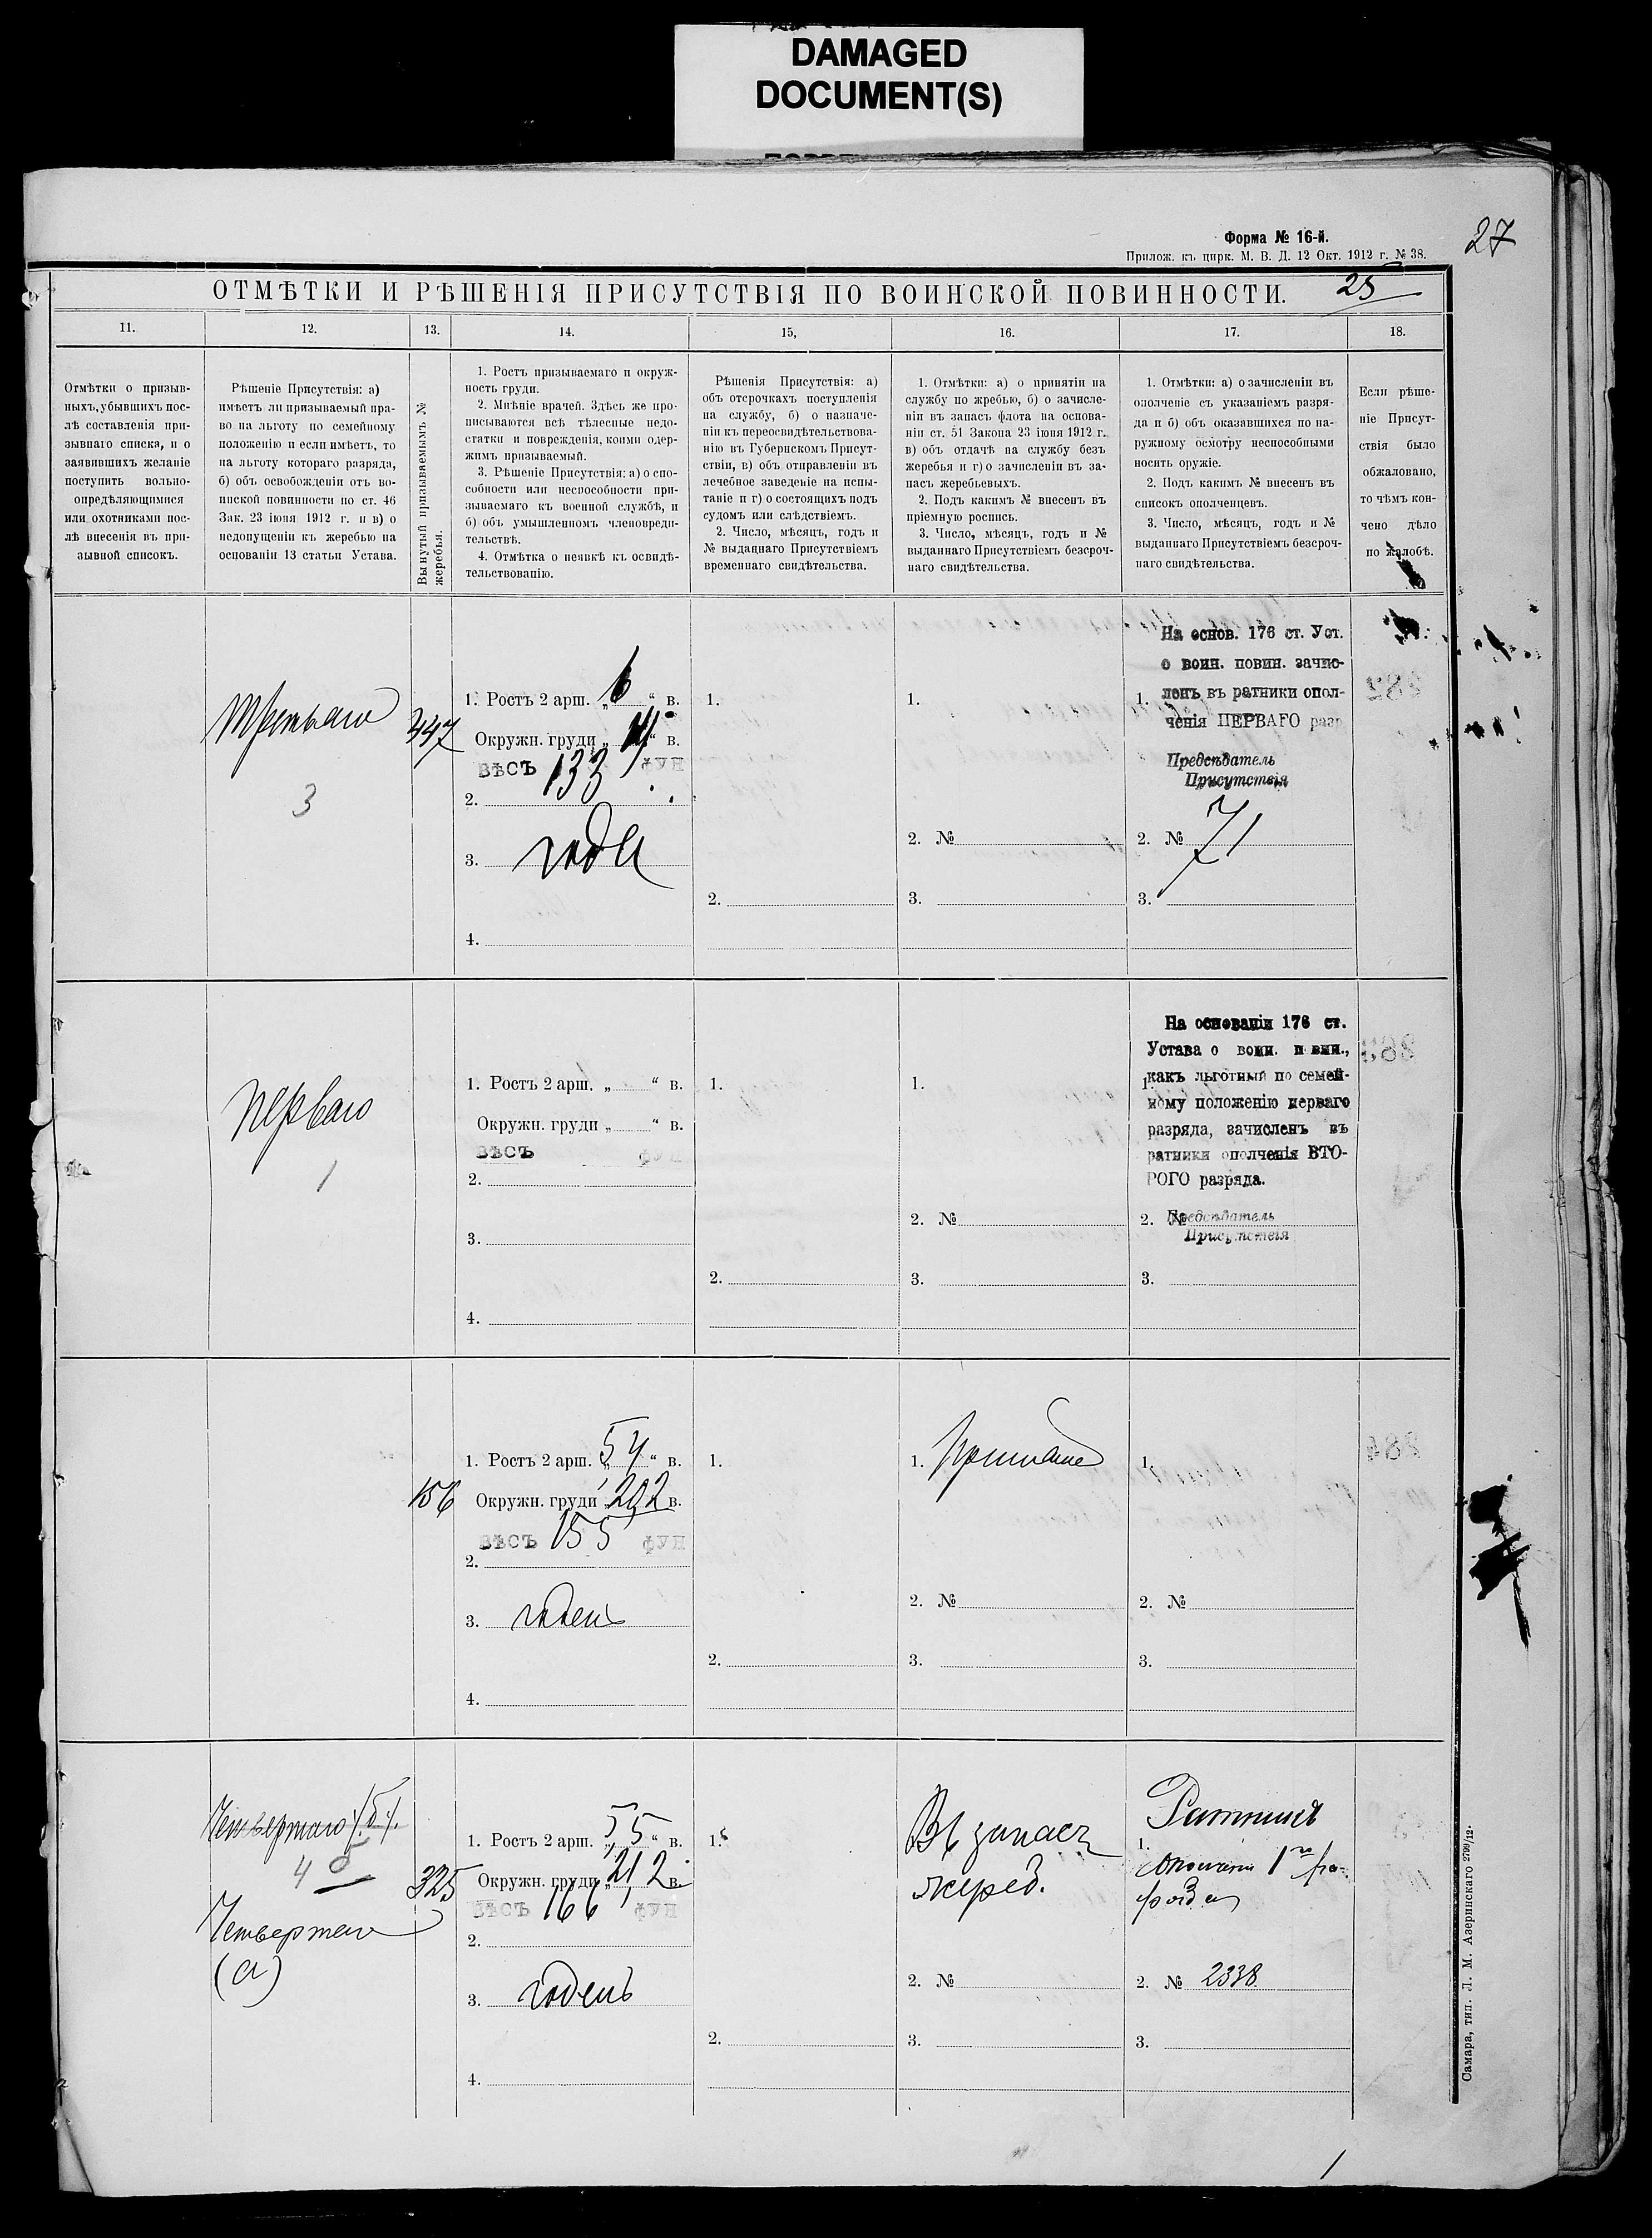 DAMAGED
DOCUMENT(S)
27
Форма № 16-й.
Прилож. къ цирк. М. В. Д. 12 Окт. 1912 г. № 38.
ОТМѢТКИ И РѢШЕНІЯ ПРИСУТСТВІЯ ПО ВОИНСКОЙ ПОВИННОСТИ.
25
11.
12.
13.
14.
15,
16.
17.
18.
Отмѣтки о призыв-
ныхъ, убывшихъ пос-
лѣ составленія при-
зывнаго списка, и о
заявившихъ желаніе
поступить вольно-
опредѣляющимися
или охотниками пос-
лѣ внесенія въ при-
зывной списокъ.
Рѣшеніе Присутствія: а)
имѣетъ ли призываемый пра-
во на льготу по семейному
положенію и если имѣетъ, то
на льготу котораго разряда,
б) объ освобожденіи отъ во-
инской повинности по ст. 46
Зак. 23 іюня 1912 г. и в) о
недопущеніи къ жеребью на
основаніи 13 статьи Устава.
Вынутый призываемымъ №
жеребья.
1. Ростъ призываемаго и окруж-
ность груди.
2. Мнѣніе врачей. Здѣсь же про-
писываются всѣ тѣлесные недо-
статки и поврежденія, коими одер-
жимъ призываемый.
3. Рѣшеніе Присутствія: а) о спо-
собности или неспособности при-
зываемаго къ военной службѣ, и
б) объ умышленномъ членовреди-
тельствѣ.
4. Отмѣтка о неявкѣ къ освидѣ-
тельствованію.
Рѣшенія Присутствія: а)
объ отсрочкахъ поступленія
на службу, б) о назначе-
ніи къ переосвидѣтельствова-
нію въ Губернскомъ Присут-
ствіи, в) объ отправленіи въ
лечебное заведеніе на испы-
таніе и г) о состоящихъ подъ
судомъ или слѣдствіемъ.
2. Число, мѣсяцъ, годъ и
№ выданнаго Присутствіемъ
временнаго свидѣтельства.
1. Отмѣтки: а) о принятіи на
службу по жребью, б) о зачисле-
ніи въ запасъ флота на основа-
ніи ст. 51 Закона 23 іюня 1912 г.
в) объ отдачѣ на службу безъ
жеребья и г) о зачисленіи въ за-
пасъ жеребьевыхъ.
2. Подъ какимъ № внесенъ въ
пріемную роспись.
3. Число, мѣсяцъ, годъ и №
выданнаго Присутствіемъ безсроч-
наго свидѣтельства.
1. Отмѣтки: а) о зачисленіи въ
ополченіе съ указаніемъ разря-
да и б) объ оказавшихся по на-
ружному осмотру неспособными
носить оружіе.
2. Подъ какимъ № внесенъ въ
списокъ ополченцевъ.
3. Число, мѣсяцъ, годъ и №
выданнаго Присутствіемъ безсроч-
наго свидѣтельства.
Если рѣше-
ніе Присут-
ствія было
обжаловано,
то чѣмъ кон-
чено дѣло
по жалобѣ.
Третьаго
3
447
1. Ростъ 2 арш. „ 6 “ в.
Окружн. груди „ “ в.
ВѢСЪ 133 ФУН
2.
3. годен
4.
1.
2.
1.
2. №
3.
На основ. 176 ст. Уст.
о воин. повин. зачис-
1. ленъ въ ратники опол-
ченія ПЕРВАГО разр
Предсѣдатель
Присутствія
2. № 71
3.
Перваго
1
1. Ростъ 2 арш. „ “ в.
Окружн. груди „ “ в.
ВѢСЪ ФУН
2.
3.
4.
1.
2.
1.
2. №
3.
На основаніи 176 ст.
Устава о воин. повин.,
1. какъ льготный по семей-
ному положенію перваго
разряда, зачисленъ въ
ратники ополченія ВТО-
РОГО разряда.
2. № Предсѣдатель
Присутствія
3.
156
1. Ростъ 2 арш. „ 5 4 “ в.
Окружн. груди „ 20,2 в.
ВѢСЪ 155 ФУН
2.
3. годенъ
4.
1.
2.
1. Принятъ
2. №
3.
1.
2. №
3.
Четвертаго (б).
4 б
Четвертаго
(а)
325
1. Ростъ 2 арш. „ 5,5 “ в.
Окружн. груди „ 21,2 в.
ВѢСЪ 166 ФУН
2.
3. годенъ
4.
1.
2.
Въ запасъ
жереб.
2. №
3.
Ратникъ
1.
ополченія 1го раз-
ряда
2. № 2338
3.
Самара, тип. Л. М. Азеринскаго 2799/12.
1